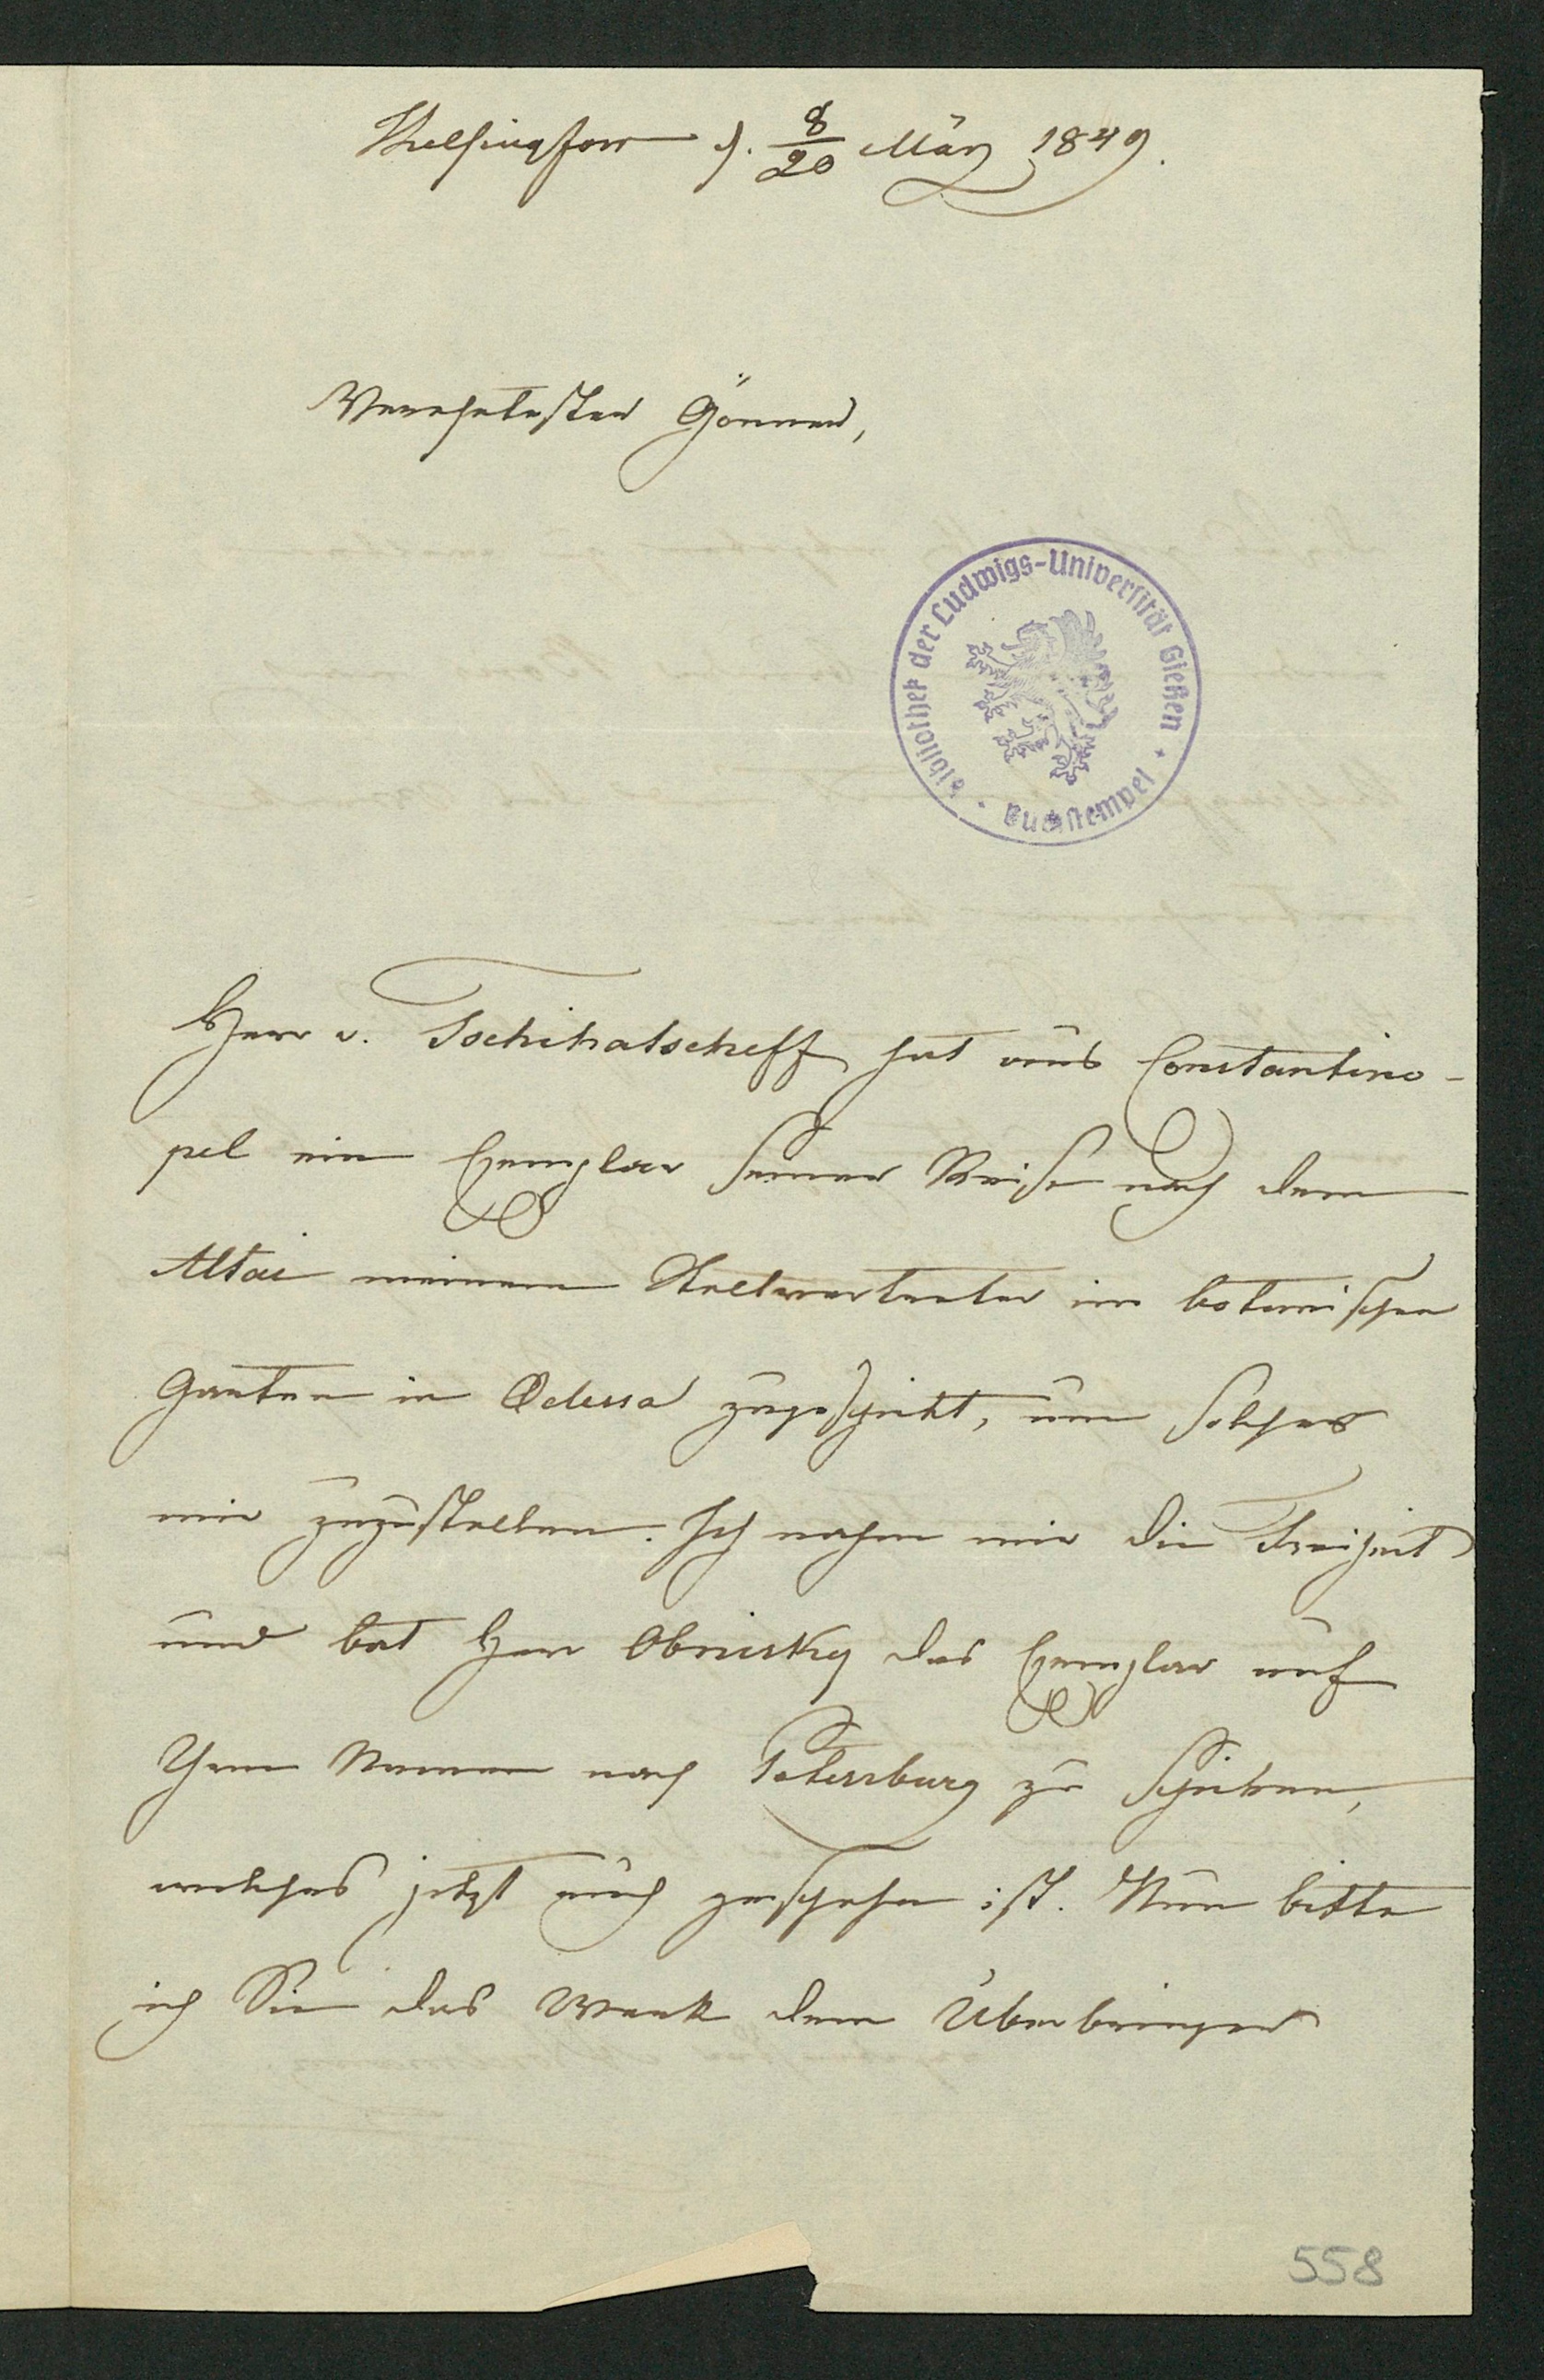 Helsingfors d. 8/20 März 1849.
Verehrtester Gönner,
Bibliothek der Ludwigs-Universität Gießen
Buchstempel
Herr v. Tschihatscheff hat aus Constantino-
pel ein Exemplar seiner Reise nach dem
Altai meinem Stellvertreter im botanischen
Garten in Odessa zugeschickt, um solches
mir zuzustellen. Ich nahm mir die Freiheit
und bat Herr Obnisky das Exemplar auf
Ihren Namen nach Petersburg zu schicken,
welches jetzt auch geschehen ist. Nun bitte
ich Sie das Werk dem Überbringer
558